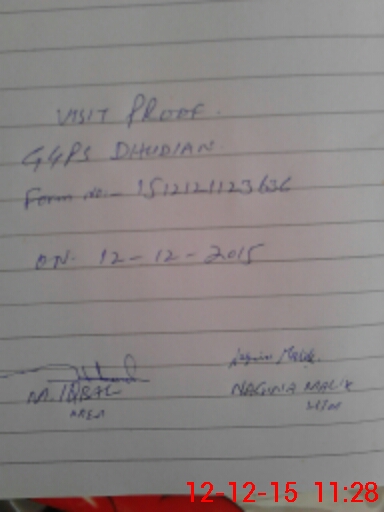 VISIT PROOF.
GGPS DHUDIAN.
Form No:- 1512121123636
ON. 12-12-2015
Nagina Malik.
M. IQBAL NAGINA MALIK
12-12-15 11:28